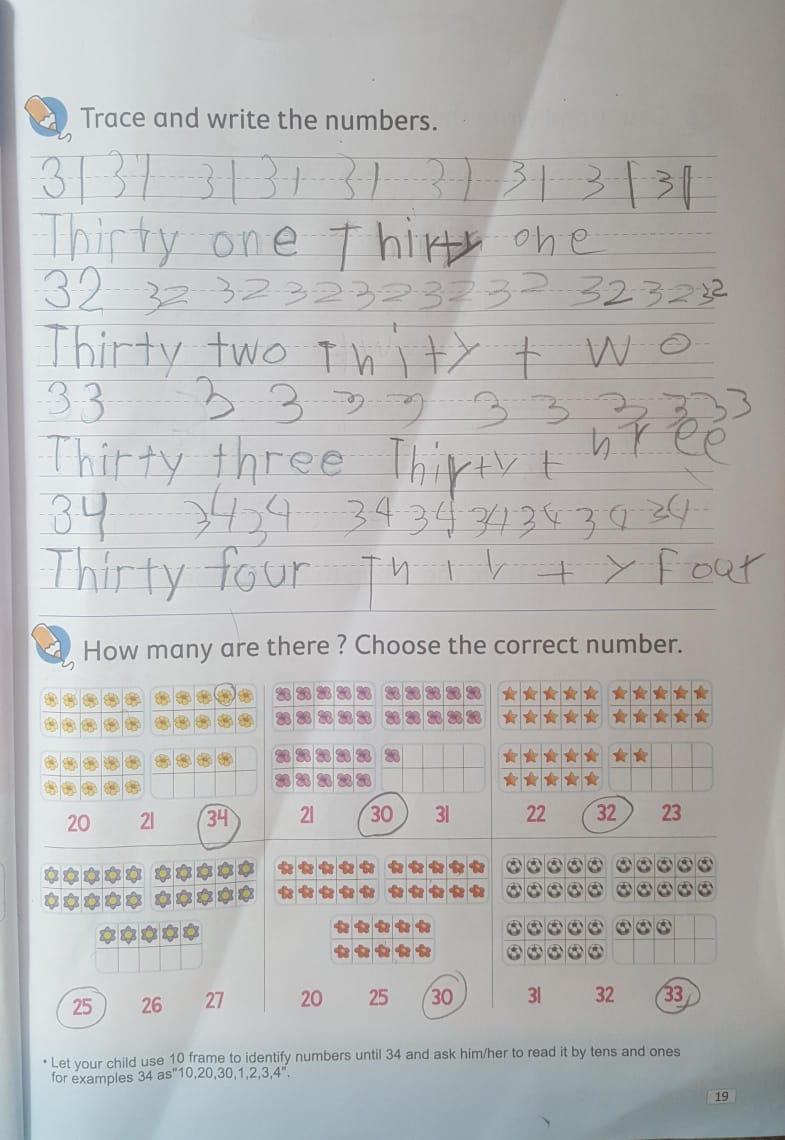 Trace and write the numbers.
31 31 31 31 31 31 31 31 31
Thirty one Thirty one
32 32 32 32 32 32 32 32 32 32
Thirty two Thity two
33 3 3 3 3 3 3 3 3 3 3
Thirty three Thirty three
34 34 34 34 34 34 34 34 34
Thirty four Thirty Four
How many are there ? Choose the correct number.
20 21 34 21 30 31 22 32 23
25 26 27 20 25 30 31 32 33
• Let your child use 10 frame to identify numbers until 34 and ask him/her to read it by tens and ones
for examples 34 as"10,20,30,1,2,3,4".
19